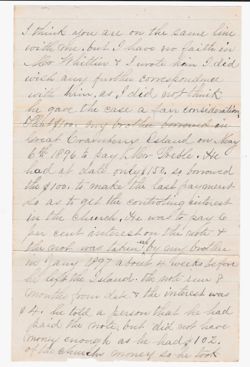 I think you are on the same line
with me, but I have no faith in
Mr Whittier & I wrote him I did
wish any further correspondence
with him, as I did not think
he gave the case a fair consideration
That $100. my brother borrowed in
Great Cranberry Island on May
6th 1896 to pay Mr. Preble. He
had at date only $150. so borrowed
the $100. to make the last payment
so as to get the controling interest
in the Church. He was to pay 6
per cent interest on the note &
the note was taken up by my brother
in Jany 1897 about 4 weeks before
he left the Island. the note run 8
months from date & the interest was
$4. he told a person that he had
paid the note, but did not have
money enough as he had $102.
of the church's money so he took